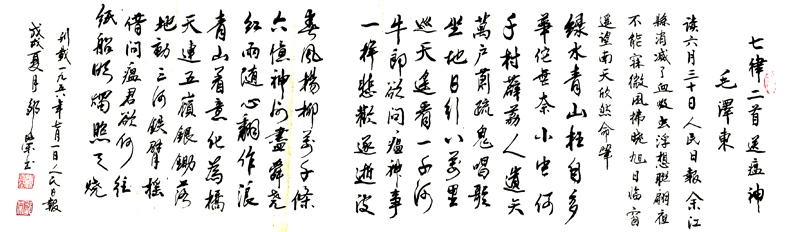 七律二首送瘟神
毛澤東
读六月三十日人民日報余江
縣消滅了血吸虫浮想聯翩夜
不能寐微風拂晓旭日临窗
遥望南天欣然命笔
绿水青山枉自多
華佗無奈小虫何
千村薜荔人遺矢
萬户蕭疏鬼唱歌
坐地日行八萬里
巡天遥看一千河
牛郎欲问瘟神事
一样悲歡逐逝波
春風楊柳萬千條
六億神州盡舜尧
红雨随心翻作浪
青山着意化為橋
天連五嶺銀鋤落
地動三河鉄臂摇
借问瘟君欲何往
纸船明燭照天燒
刊載一九五八年十月一日人民日報
戊戌夏月邹